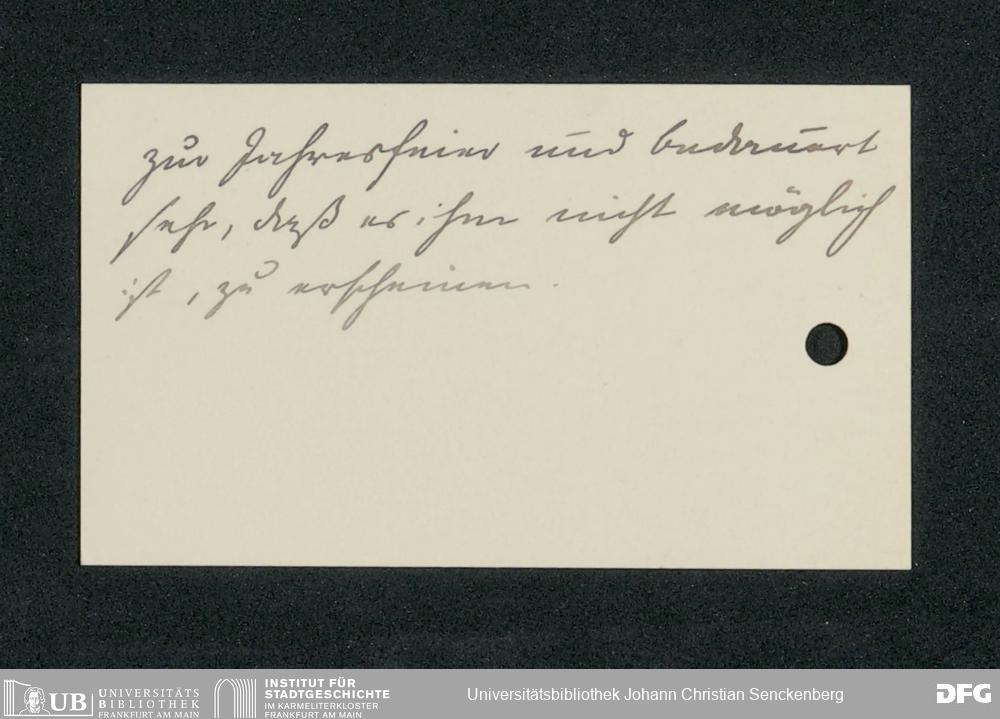 zur Jahresfeier und bedauert
sehr, daß es ihm nicht möglich
ist, zu erscheinen.
UB
UNIVERSITÄTS
BIBLIOTHEK
FRANKFURT AM MAIN
INSTITUT FÜR
STADTGESCHICHTE
IM KARMELITERKLOSTER
FRANKFURT AM MAIN
Universitätsbibliothek Johann Christian Senckenberg
DFG